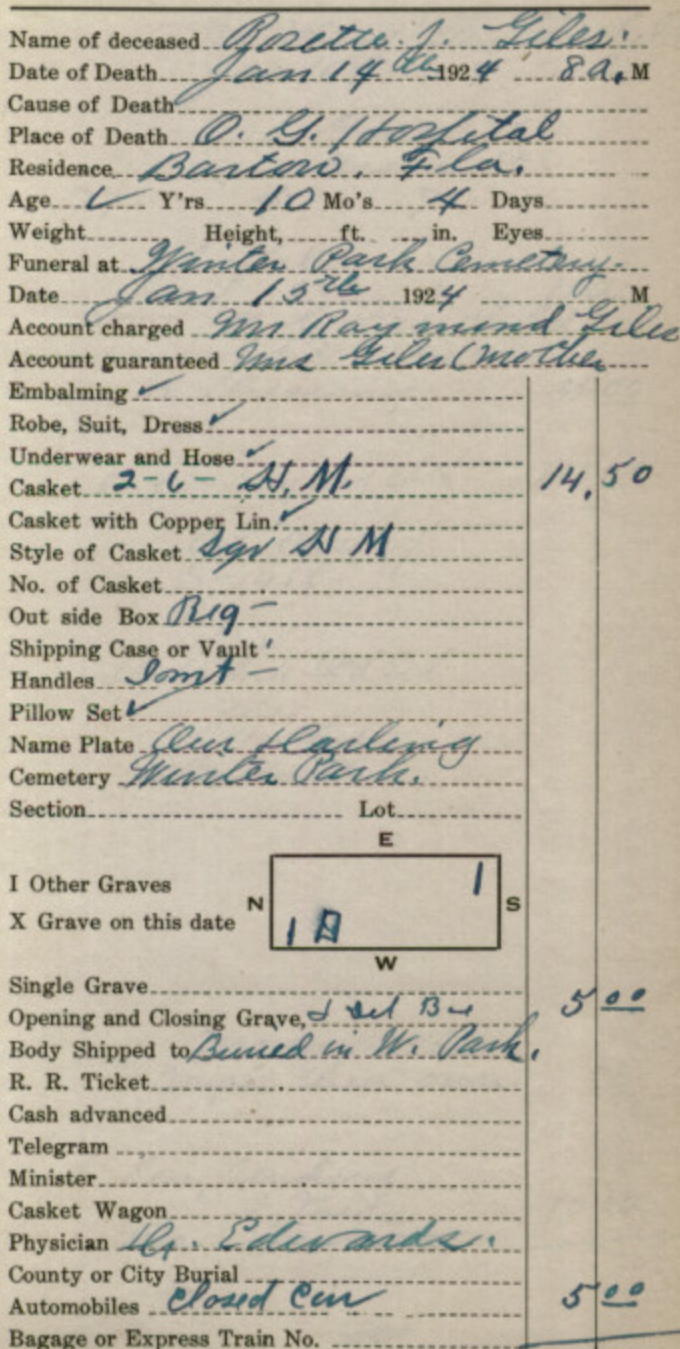 Name of deceased Rosette. J. Giles.
Date of Death Jan 14th 1924 8 a. M
Cause of Death
Place of Death O. G. Hospital
Residence Bartow, Fla.
Age ✓ Y'rs 10 Mo's 4 Days
Weight Height, ft. in. Eyes
Funeral at Winter Park Cemetery.
Date Jan 15th 1924 M
Account charged Mr Raymond Giles
Account guaranteed Mrs Giles (Mother
Embalming ✓
Robe, Suit, Dress ✓
Underwear and Hose ✓
Casket 2-6- H. M. 14.50
Casket with Copper Lin. ✓
Style of Casket Sqr H M
No. of Casket
Out side Box Reg -
Shipping Case or Vault '
Handles -
Pillow Set ✓
Name Plate Our Darling
Cemetery Winter Park.
Section Lot
E
I Other Graves
N S
X Grave on this date
W
Single Grave
Opening and Closing Grave, & Del 5 00
Body Shipped to Buried in W. Park.
R. R. Ticket
Cash advanced
Telegram
Minister
Casket Wagon
Physician Dr. Edwards.
County or City Burial
Automobiles Closed Car 5 00
Bagage or Express Train No.